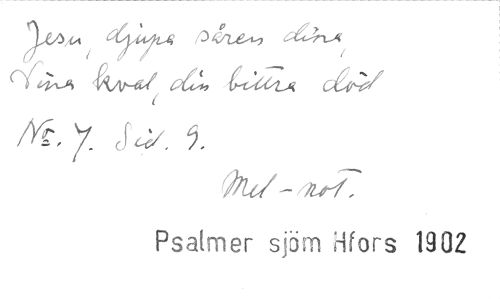 Jesu, djupa såren dina,
Dina kval, din bittra död
No. 7. Sid. 9.
Mel-not.
Psalmer sjöm Hfors 1902